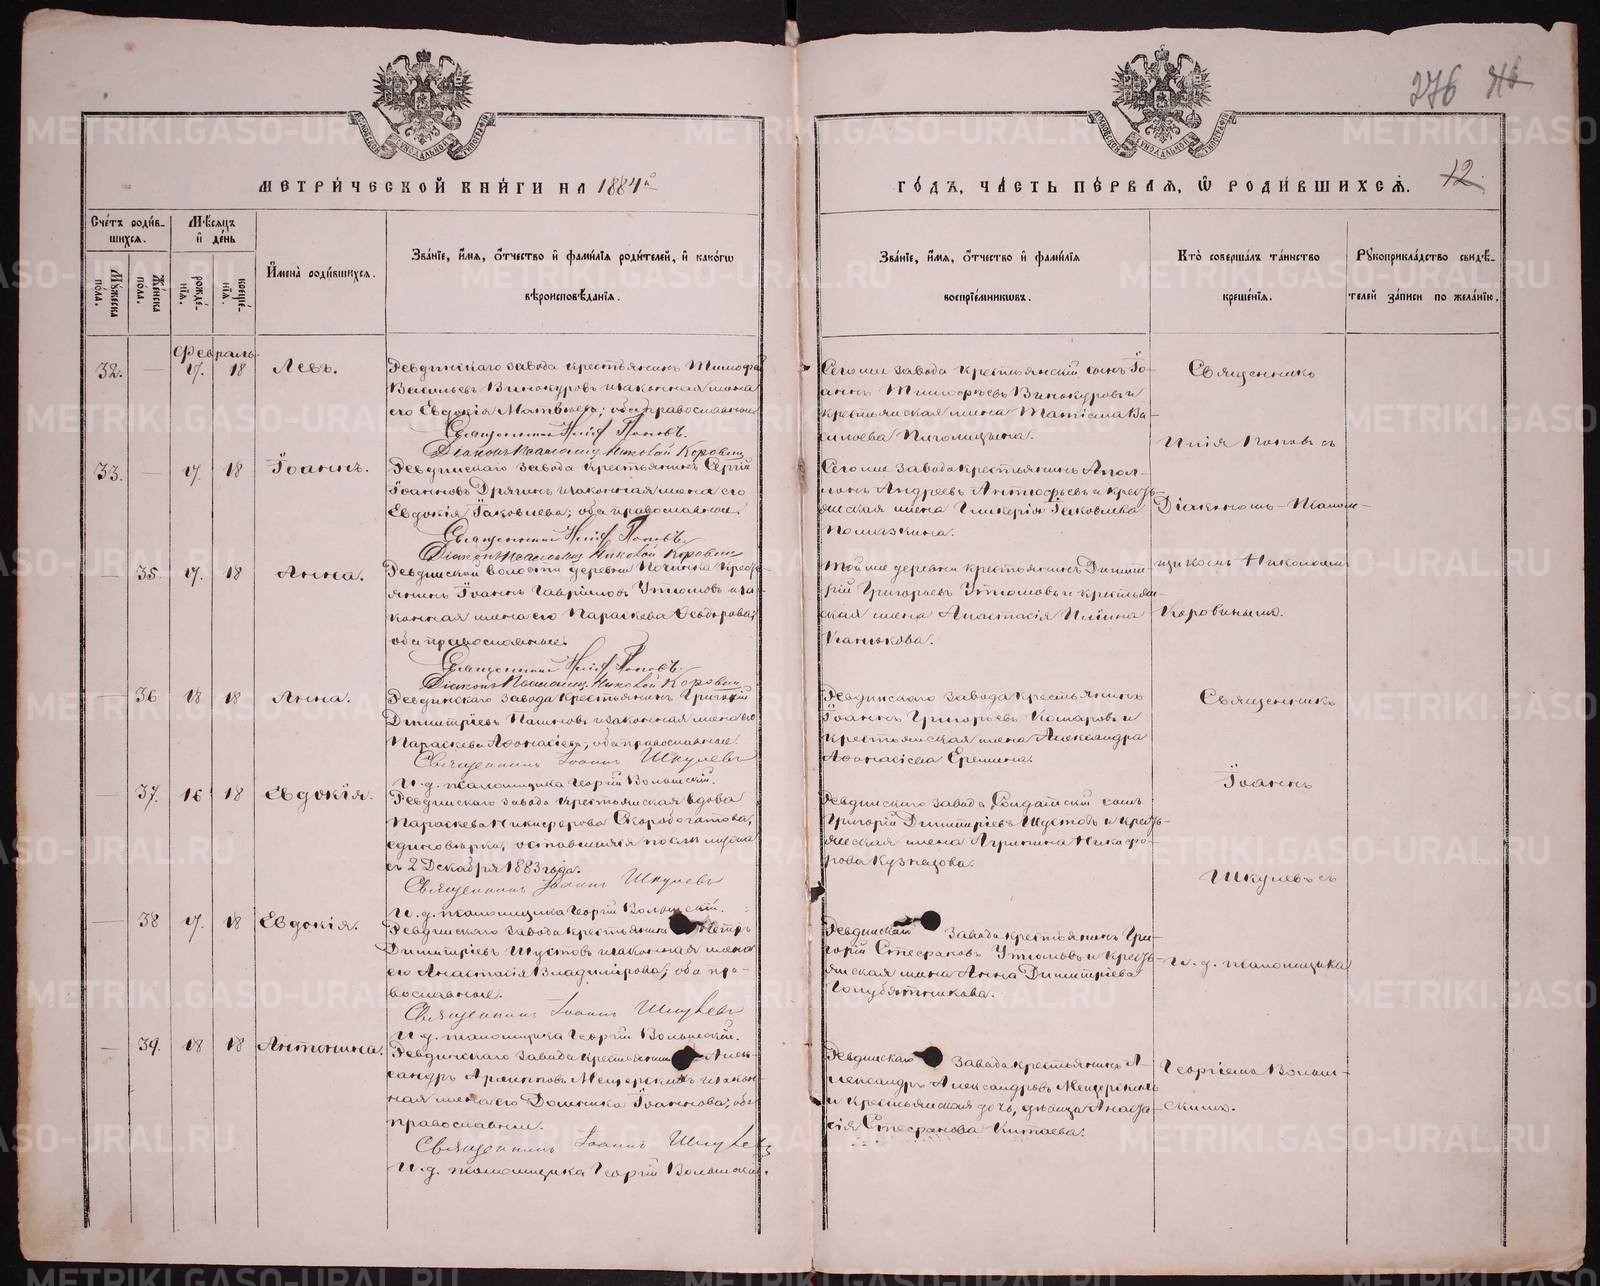 276
МЕТРИ́ЧЕСКОЙ КНИ́ГИ НА 1884й
ГО́ДЪ, ЧА́СТЬ ПЕ́РВАЯ, Ѿ РОДИ́ВШИХСЯ.
12
Сче́тъ роди́в-
шихся.
Мѣ́сяцъ
и҆ де́нь
Му́жеска
пола.
Же́нска
пола.
рожде́-
нїя.
креще́-
нїя.
И҆мена̀ роди́вшихся.
Зва́нїе, и҆́мя, ѻ҆́тчество и҆ фами́лїя роди́телей, и҆ како́гѡ
вѣроисповѣ́данїя.
Зва́нїе, и҆́мя, ѻ҆́тчество и҆ фами́лїя
воспрїе́мникѡвъ.
Кто̀ соверша́лъ та́инство
креще́нїя.
Рꙋкоприкла́дство свидѣ́-
телей за́писи по жела́нїю.
Февраль
32. — 17. 18 Левъ.
Ревдинскаго завода крестьянинъ Тимофей
Васильевъ Винокуровъ и законная жена
его Евдокія Матвѣева; оба православные
Священникъ Илія Поповъ.
Діаконъ-Псаломщ. Николай Коровин
Сего же завода крестьянскій сынъ Іо-
аннъ Тимофѣевъ Винокуровъ и
крестьянская жена Татіана Ва-
сильева
Священникъ
Илія Поповъ съ
33. — 17. 18 Іоаннъ.
Ревдинскаго завода крестьянинъ Сергій
Іоанновъ Дрягинъ и законная жена его
Евдокія Іаковлева; оба православные.
Священникъ Илія Поповъ.
Діаконъ-Псаломщ. Николай Коровин
Сего же завода крестьянинъ Апол-
лонъ Андреевъ и кресть-
янская жена Гликерія Іаковлева
Діакономъ-Псалом-
— 35. 17. 18 Анна.
Ревдинской волости деревни Починка кресть-
янинъ Іоаннъ Гавриловъ Утюмовъ и за-
конная жена его Параскева Ѳеодорова;
оба православные.
Священникъ Илія Поповъ.
Діаконъ-Псаломщ. Николай Коровин
Той же деревни крестьянинъ Димит-
рій Григорьевъ Утюмовъ и крестьян-
ская жена Анастасія Ильина
щикомъ Николаемъ
Коровинымъ.
— 36 18 18 Анна.
Ревдинскаго завода крестьянинъ Григорій
Димитріевъ и законная жена его
Параскева Аѳонасіева, оба православные.
Священникъ Іоаннъ Шкулевъ
И. д. псаломщика Георгій Волынскій.
Ревдинскаго завода крестьянинъ
Іоаннъ Григорьевъ Комаровъ и
крестьянская жена Александра
Аѳонасіева Еремина.
Священникъ
Іоаннъ
— 37. 16 18 Евдокія.
Ревдинскаго завода крестьянская вдова
Параскева Никифорова Скоробогатова,
единовѣрка, оставшаяся послѣ мужа
съ 2 Декабря 1883 года.
Священникъ Іоаннъ Шкулевъ
И. д. псаломщика Георгій Волынскій.
Ревдинскаго завода, Солдатскій сынъ
Григорій Димитріевъ Шустовъ и кресть-
янская жена Агрипина Никифо-
рова Кузнецова.
Шкулевъ съ
— 38 17. 18 Евдокія.
Ревдинскаго завода крестьянинъ Петръ
Димитріевъ Шустовъ и законная жена
его Анастасія Владимірова; оба пра-
вославные.
Священникъ Іоаннъ Шкулевъ
И. д. псаломщика Георгій Волынскій.
Ревдинскаго завода крестьянинъ Гри-
горій Стефановъ Утюмовъ и кресть-
янская жена Анна Димитріева
Голубятникова.
И. д. псаломщика
— 39. 18 18 Антонина.
Ревдинскаго завода крестьянинъ Алек-
сандръ Архиповъ Мещерскихъ и закон-
ная жена его Домника Іоаннова; оба
православные.
Священникъ Іоаннъ Шкулевъ
И. д. псаломщика Георгій Волынскій.
Ревдинскаго завода крестьянинъ А-
лександръ Александровъ Мещерскихъ
и крестьянская дочь, дѣвица Анаста-
сія Стефанова Китаева.
Георгіемъ Волын-
скимъ.
METRIKI.GASO-URAL.RU